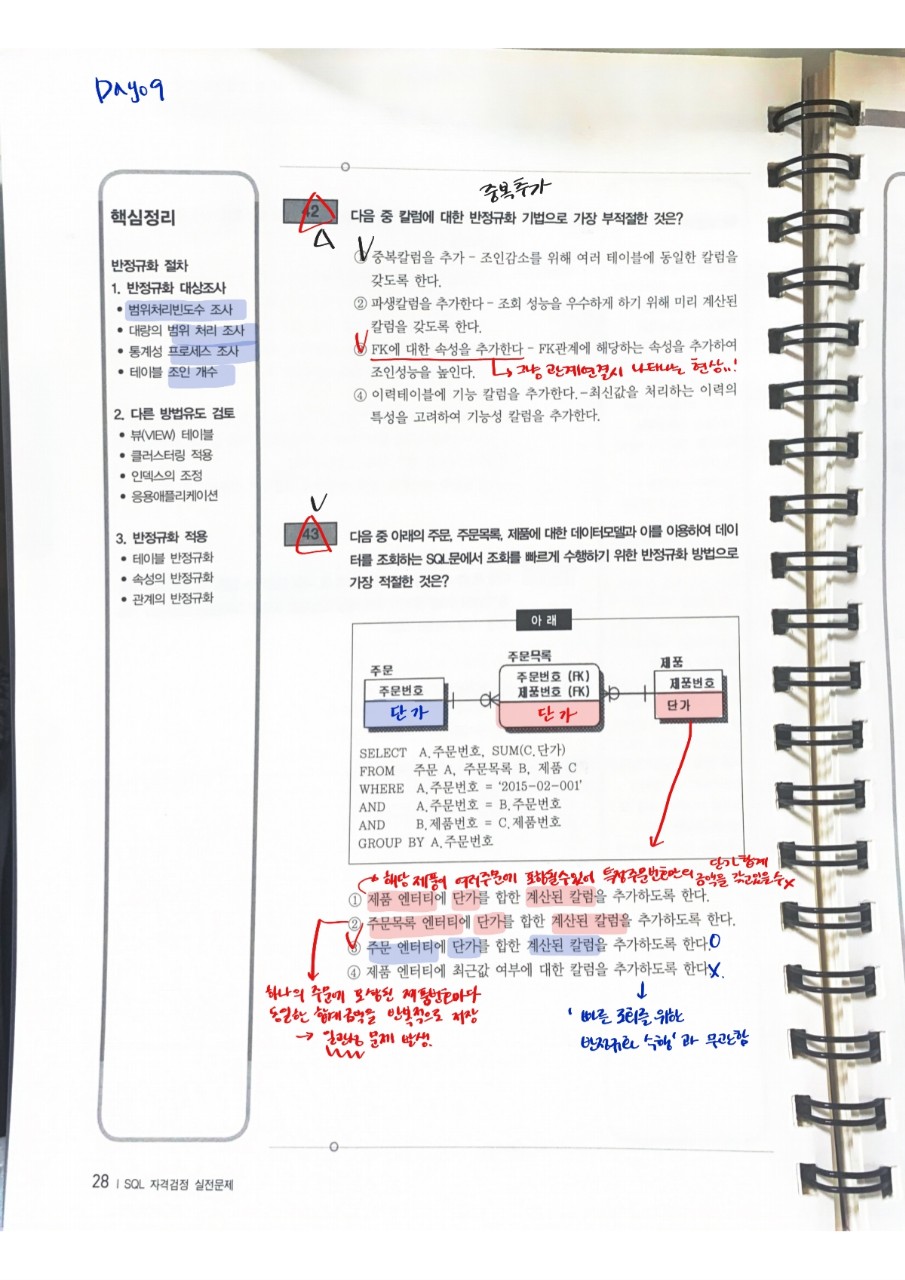 Day09
핵심정리
반정규화 절차
1. 반정규화 대상조사
• 범위처리빈도수 조사
• 대량의 범위 처리 조사
• 통계성 프로세스 조사
• 테이블 조인 개수
2. 다른 방법유도 검토
• 뷰(VIEW) 테이블
• 클러스터링 적용
• 인덱스의 조정
• 응용애플리케이션
3. 반정규화 적용
• 테이블 반정규화
• 속성의 반정규화
• 관계의 반정규화
중복추가
42 다음 중 칼럼에 대한 반정규화 기법으로 가장 부적절한 것은?
① 중복칼럼을 추가 – 조인감소를 위해 여러 테이블에 동일한 칼럼을
갖도록 한다.
② 파생칼럼을 추가한다 – 조회 성능을 우수하게 하기 위해 미리 계산된
칼럼을 갖도록 한다.
③ FK에 대한 속성을 추가한다 – FK관계에 해당하는 속성을 추가하여
조인성능을 높인다.
그냥 관계연결시 나타나는 현상..!
④ 이력테이블에 기능 칼럼을 추가한다.–최신값을 처리하는 이력의
특성을 고려하여 기능성 칼럼을 추가한다.
43 다음 중 아래의 주문, 주문목록, 제품에 대한 데이터모델과 이를 이용하여 데이
터를 조회하는 SQL문에서 조회를 빠르게 수행하기 위한 반정규화 방법으로
가장 적절한 것은?
아 래
주문 주문목록 제품
주문번호 주문번호 (FK) 제품번호
제품번호 (FK)
단가 단가 단가
SELECT A.주문번호, SUM(C.단가)
FROM 주문 A, 주문목록 B, 제품 C
WHERE A.주문번호 = '2015-02-001'
AND A.주문번호 = B.주문번호
AND B.제품번호 = C.제품번호
GROUP BY A.주문번호
해당 제품이 여러주문에 포함될수있어 특정주문번호만의 단가 합계
금액을 갖고있을 수 x
① 제품 엔터티에 단가를 합한 계산된 칼럼을 추가하도록 한다.
② 주문목록 엔터티에 단가를 합한 계산된 칼럼을 추가하도록 한다.
③ 주문 엔터티에 단가를 합한 계산된 칼럼을 추가하도록 한다. O
④ 제품 엔터티에 최근값 여부에 대한 칼럼을 추가하도록 한다. X.
하나의 주문에 포함된 제품번호마다
동일한 합계금액을 반복적으로 저장
→ 일관성 문제 발생.
'빠른 조회를 위한
반정규화 수행' 과 무관함
28 | SQL 자격검정 실전문제